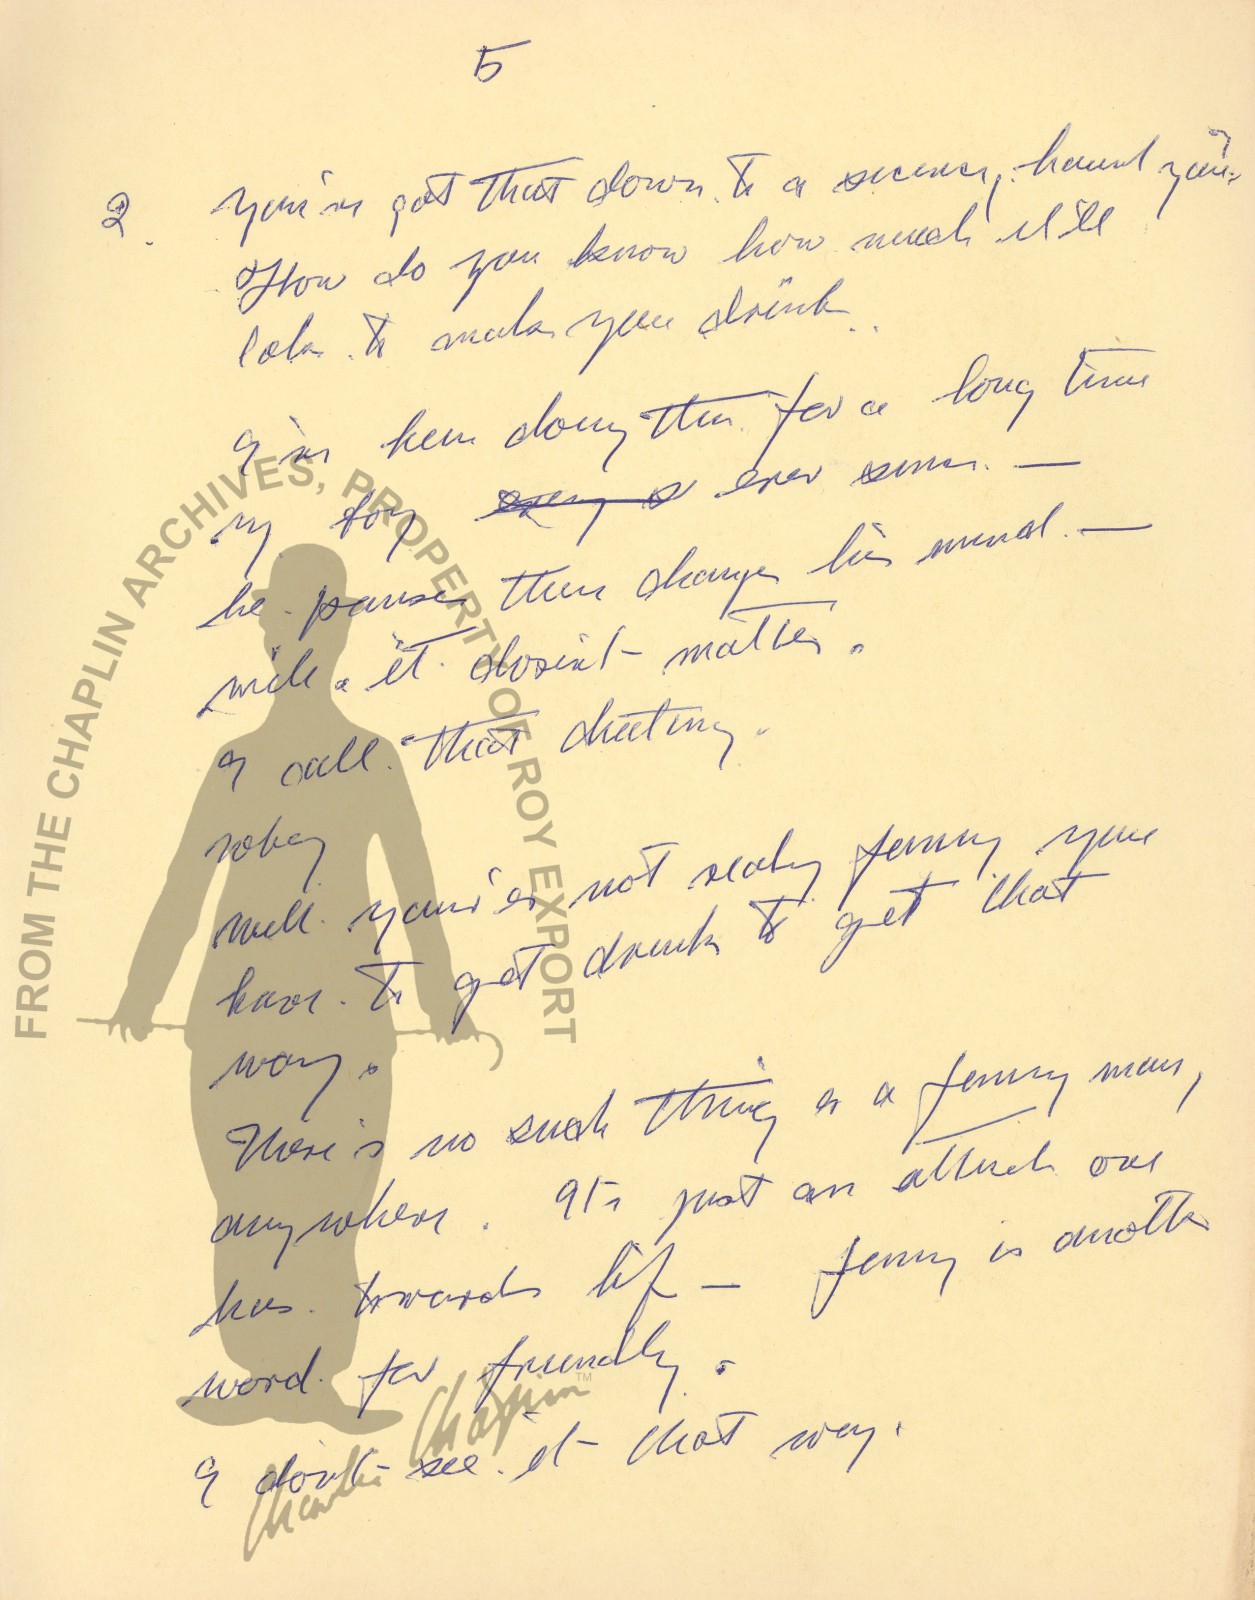 5
2. You've got that down to a science, haven't you?
How do you know how much it'll
take to make you drunk.
I've been doing this for a long time
my boy ever since. —
he pauses then changes his mind. —
well. it doesn't matter.
I call that cheating.
why
well you're not really funny you
have to get drunk to get that
way.
There's no such thing as a funny man,
anywhere. It's just an attitude one
has towards life — funny is another
word for friendly.
I don't see it that way.
FROM THE CHAPLIN ARCHIVES, PROPERTY OF ROY EXPORT
Charlie Chaplin TM